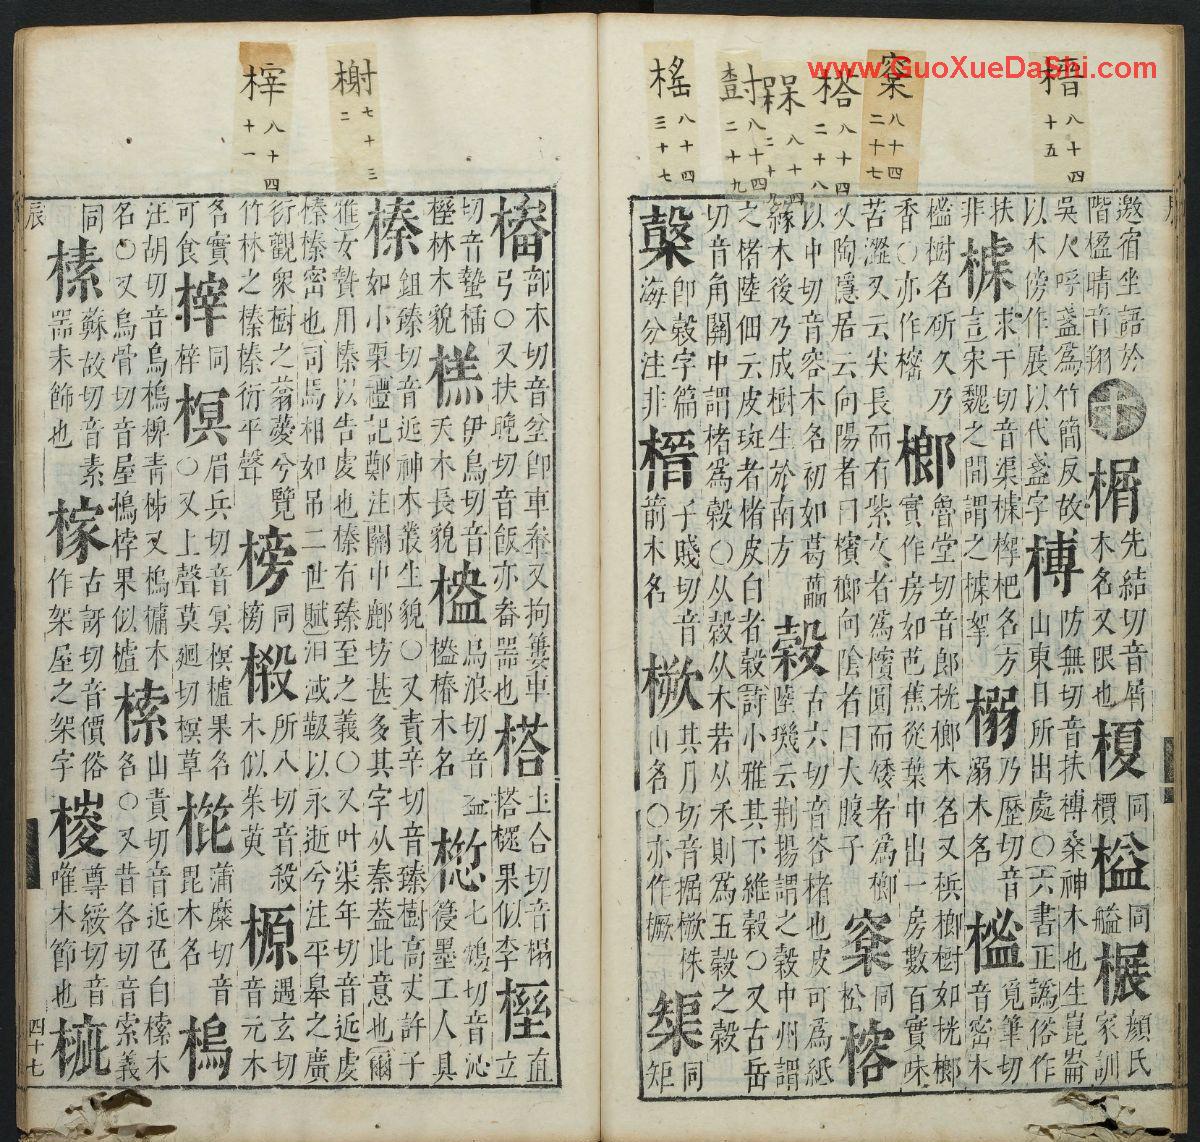 www.GuoXueDaShi.com
榗 八十四 十五
㮤 八十四 二十七
榙 八十四 二十八
八十四 二十九
八十四 二十九
榣 八十四 三十七
榭 七十三 二
榟 八十四 十一
邀宿坐語於階楹晴音翔 十 榍 先結切音屑木名又限也 榎 同檟 榏 同艗 榐 顏氏家訓
吳人呼盞爲竹簡反故以木傍作展以代盞字 榑 防無切音扶榑桑神木也生崑崙山東日所出處○六書正譌俗作
扶非 求于切音渠 椑杷名方言宋魏之間謂之 挐 榒 乃歷切音溺木名 榓 覓筆切音密木
榓樹名斫久乃香○亦作櫁 榔 魯堂切音郎桄榔木名又梹榔樹如桄榔實作房如芭蕉從葉中出一房數百實味
苦澀又云尖長而有紫文者爲檳圓而矮者為榔又陶隱居云向陽者曰檳榔向陰者曰大腹子 㮤 同松 榕
以中切音容木名初如葛藟緣木後乃成樹生於南方 榖 古六切音谷楮也皮可爲紙陸璣云荊揚謂之榖中州謂
之楮陸佃云皮斑者楮皮白者榖詩小雅其下維榖○又古岳切音角關中謂楮爲榖○从榖从木若从禾則爲五穀之穀
卽榖字篇海分注非 榗 子賤切音箭木名 其月切音掘 株山名○亦作橛 榘 同矩
部木切音坌卽車軬又拘簍車弓○又扶晚切音飯亦畚器也 榙 土合切音榻榙 果似李 直立
切音蟄 林木貌 伊鳥切音 夭木長貌 烏浪切音盎 椿木名 七鴆切音沁 墨工人具
榛 鉏臻切音近神木叢生貌○又責辛切音臻樹高丈許子如小栗禮記鄭注關中鄜坊甚多其字从秦葢此意也爾
雅女贄用榛以告虔也榛有臻至之義○又叶渠年切音近虔榛榛密也司馬相如吊二世賦汩淢靸以永逝兮注平皋之廣
衍觀衆樹之蓊薆兮覽竹林之榛榛衍平聲 榜 同榜 榝 所八切音殺木似茱萸 榞 遇玄切音元木
名實可食 榟 同梓 榠 眉兵切音冥榠樝果名○又上聲莫迥切榠草 㮰 蒲糜切音毘木名 槝
汪胡切音烏槝椑靑柹又槝 木名○又烏骨切音屋榅桲果似樝 山責切音近色白 木名○又昔各切音索義
同 榡 蘇故切音素器未飾也 榢 古訝切音價俗作架屋之架字 尊綏切音嗺木節也 榹
辰 四十七